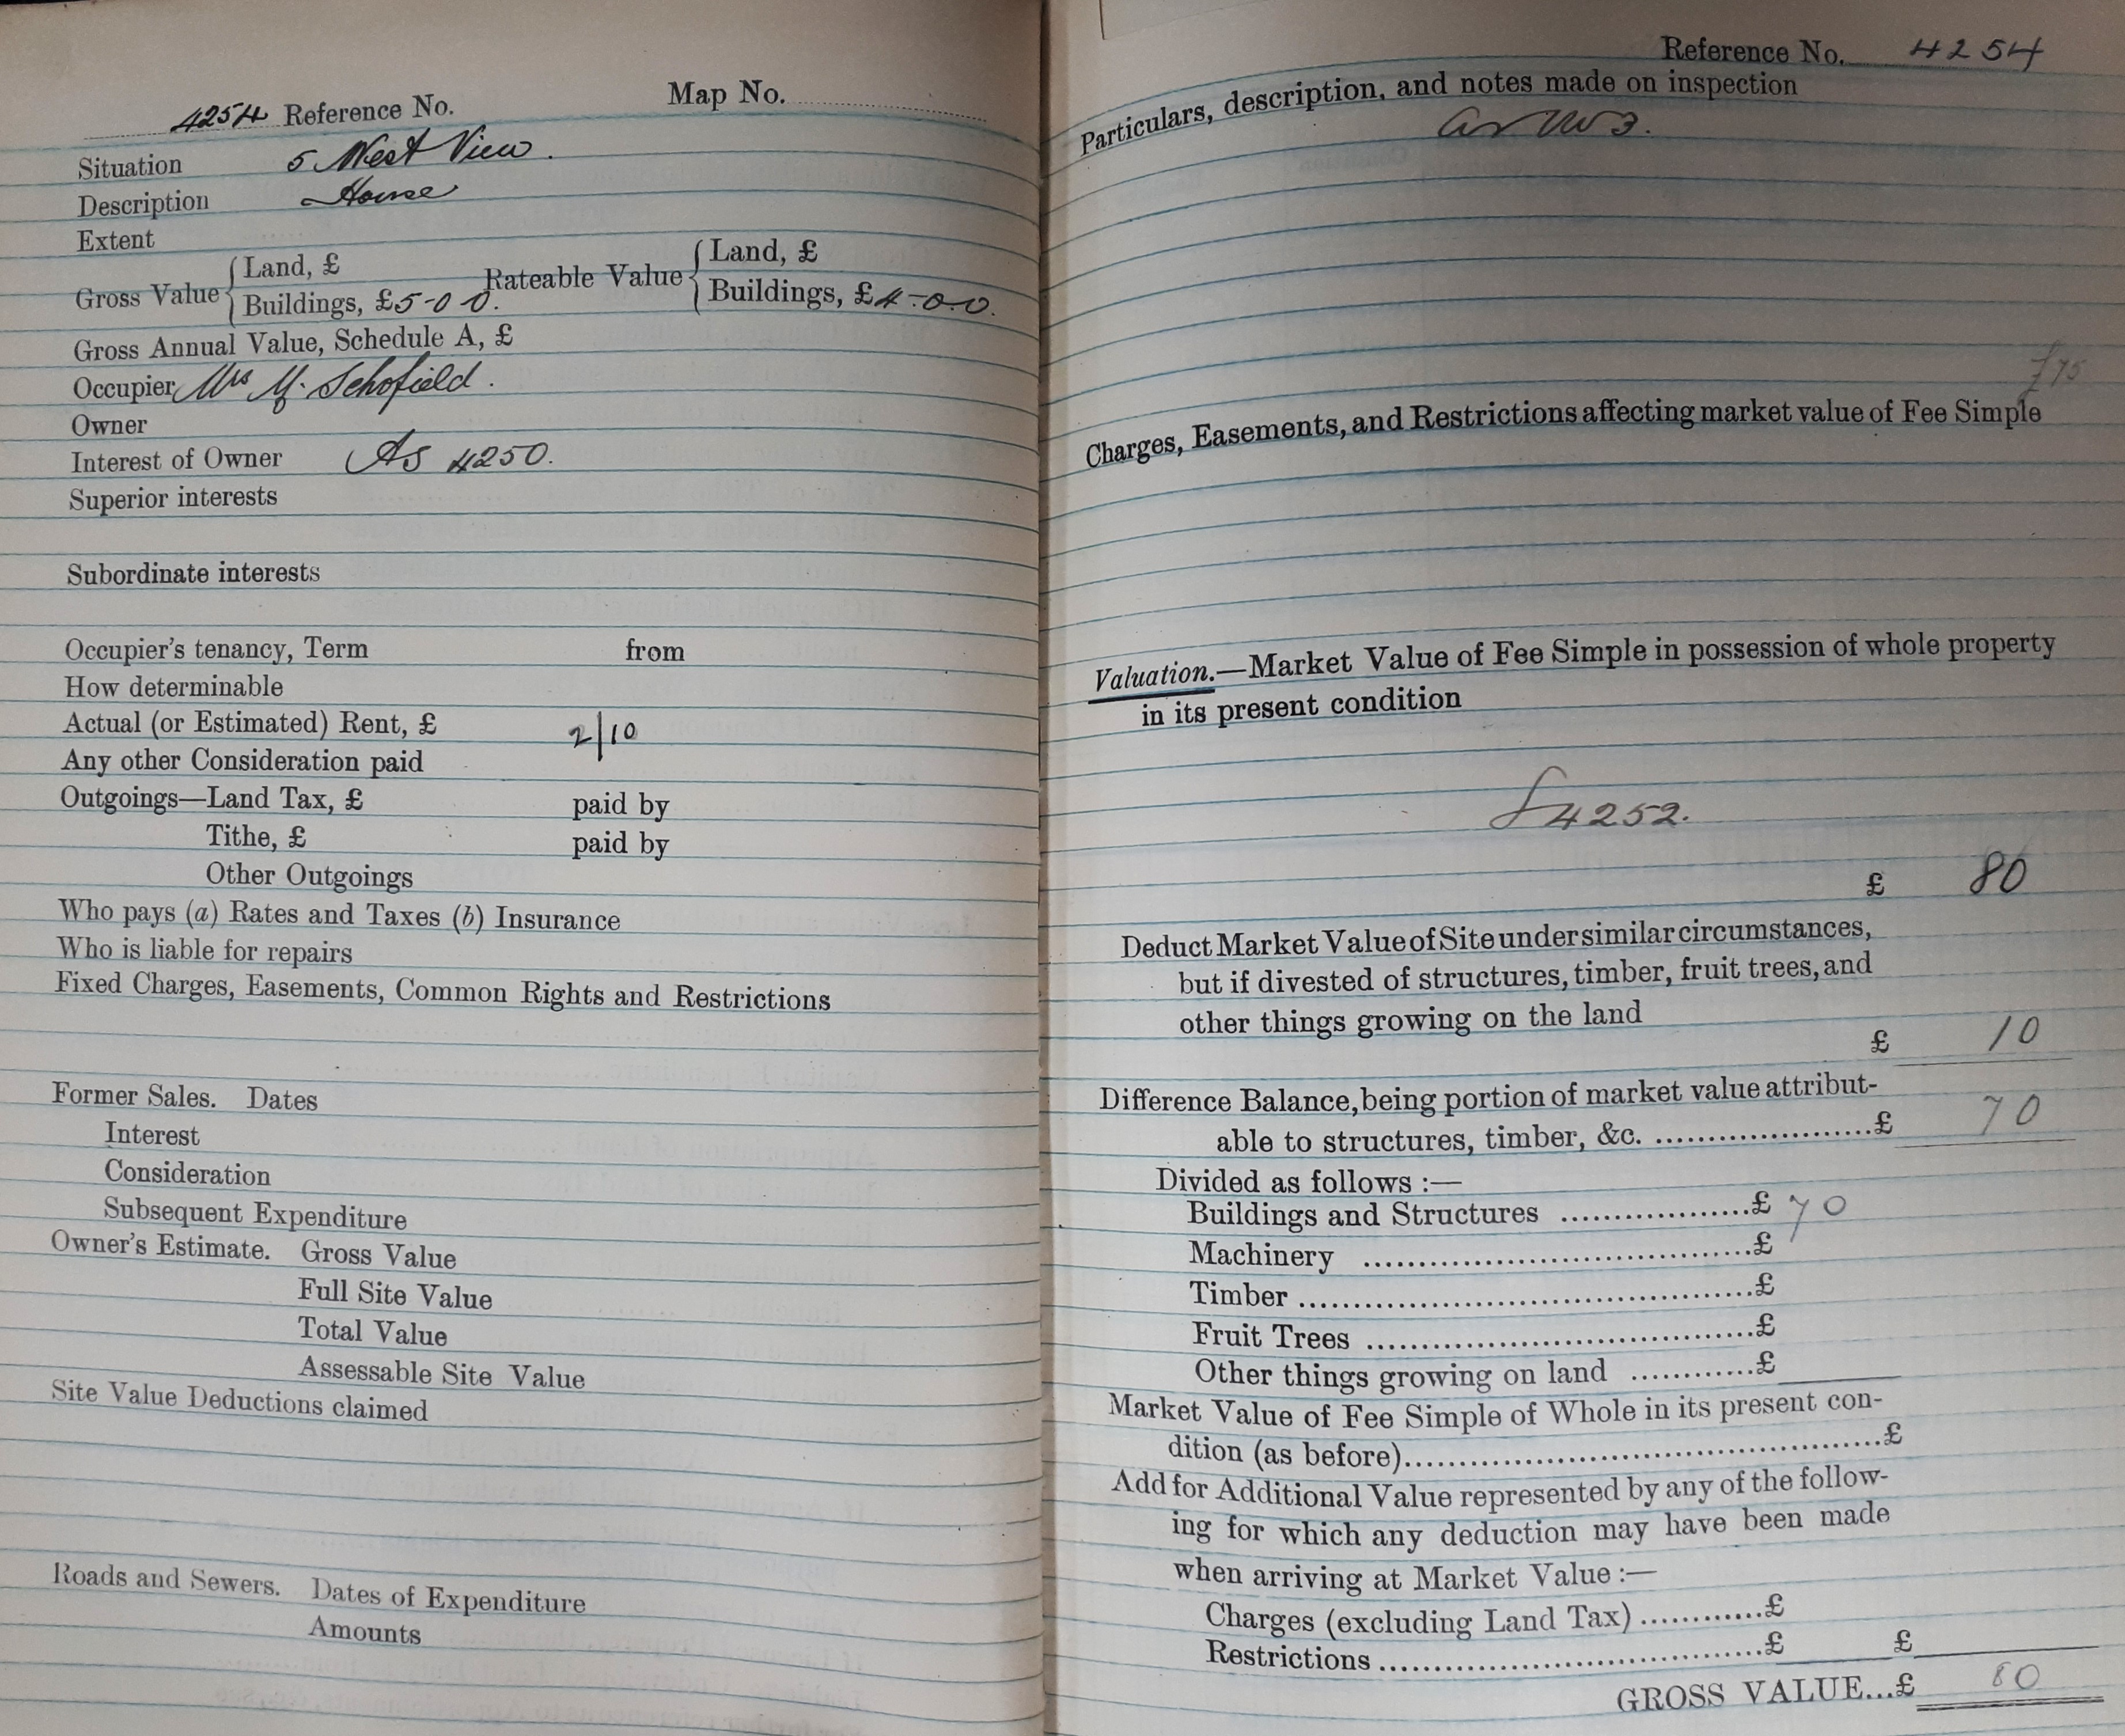 4254 Reference No. Map No.
Situation 5 West View.
Description House
Extent
Gross Value { Land, £ Rateable Value { Land, £
Buildings, £5-0-0. Buildings, £4-0-0.
Gross Annual Value, Schedule A, £
Occupier Mrs M. Schofield.
Owner
Interest of Owner As 4250.
Superior interests
Subordinate interests
Occupier's tenancy, Term from
How determinable
Actual (or Estimated) Rent, £ 2/10
Any other Consideration paid
Outgoings—Land Tax, £ paid by
Tithe, £ paid by
Other Outgoings
Who pays (a) Rates and Taxes (b) Insurance
Who is liable for repairs
Fixed Charges, Easements, Common Rights and Restrictions
Former Sales. Dates
Interest
Consideration
Subsequent Expenditure
Owner's Estimate. Gross Value
Full Site Value
Total Value
Assessable Site Value
Site Value Deductions claimed
Roads and Sewers. Dates of Expenditure
Amounts
Reference No. 4254
Particulars, description, and notes made on inspection
as
£75
Charges, Easements, and Restrictions affecting market value of Fee Simple
Valuation.—Market Value of Fee Simple in possession of whole property
in its present condition
4252.
£ 80
Deduct Market Value of Site under similar circumstances,
but if divested of structures, timber, fruit trees, and
other things growing on the land
£ 10
Difference Balance, being portion of market value attribut-
able to structures, timber, &c. ......................£ 70
Divided as follows :—
Buildings and Structures ...................£ 70
Machinery .....................................£
Timber ............................................£
Fruit Trees .....................................£
Other things growing on land ............£
Market Value of Fee Simple of Whole in its present con-
dition (as before)..............................................£
Add for Additional Value represented by any of the follow-
ing for which any deduction may have been made
when arriving at Market Value :—
Charges (excluding Land Tax) ............£
Restrictions .....................................£ £
GROSS VALUE...£ 80